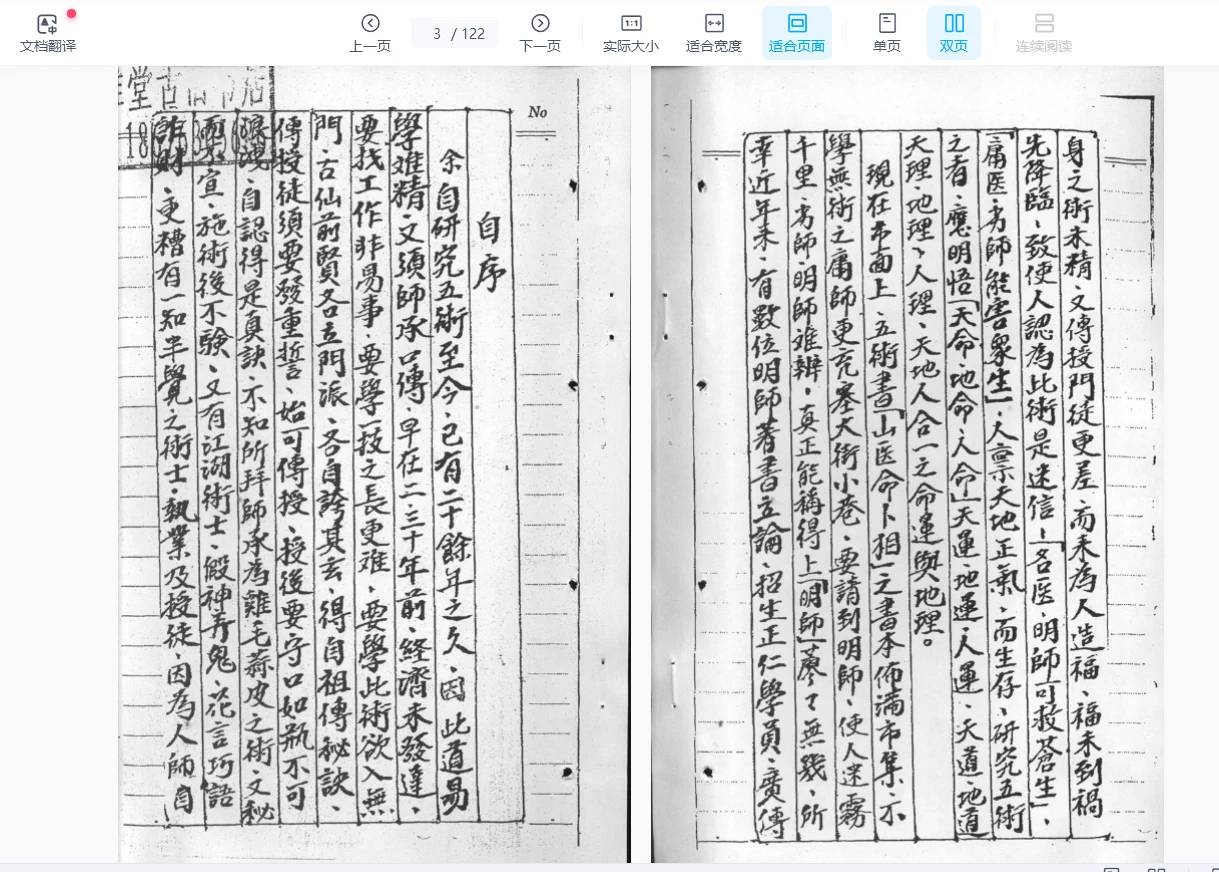 文档翻译
上一页
3 / 122
下一页
1:1
实际大小
适合宽度
适合页面
单页
双页
连续阅读
No
自序
余自研究五術至今、己有二十餘年之久、因此道易
學难精、又須師承口傳、早在二三十年前、経濟未發達、
要找工作非易事、要學一技之長更难、要學此術欲入無
門、古仙前賢各立門派、各自誇其玄、得自祖傳秘訣、
傳授徒須要發重誓、始可傳授、授後要守口如瓶不可
自認得是真訣、不知所拜師承為雞毛蒜皮之術、又秘
宣、施術後不験、又有江湖術士、般神弄鬼、花言巧語
財、更糟有一知半覺之術士、執業及授徒、因為人師自
身之術未精、又傳授門徒更差、而未為人造福、福未到禍
先降臨、致使人認為此術是迷信、「名医、明師可救蒼生」、
「庸医、劣師能害眾生」、人禀天地正氣、而生存、研究五術
之者、應明悟「天命、地命、人命」天運、地運、人運、天道地道
天理、地理、人理、天地人合一之命運與地理。
現在市面上、五術書「山医命卜相」之書本佈満市集、不
學無術之庸師更充塞大街小巷、要請到明師、使人迷霧
千里、劣師、明師难辨、真正能稱得上「明師」寥了無幾、所
幸近年来、有數位明師著書立論、招生正仁學員、廣傳